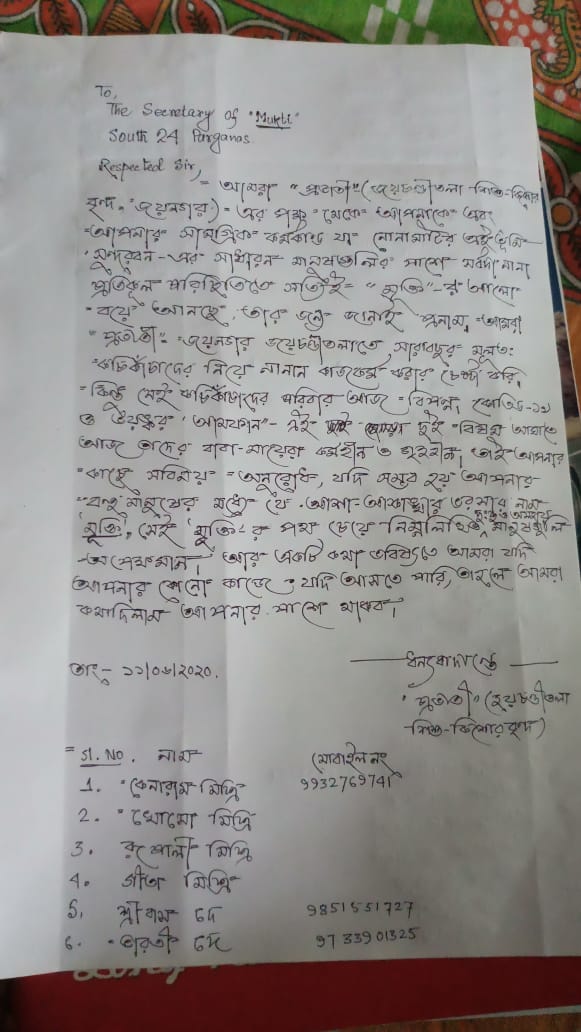 To,
The Secretary of "Mukti"
South 24 Parganas
Respected Sir,
আমরা "প্রভাতী" (জয়চণ্ডীতলা শিশু-কিশোর
বৃন্দ, জয়নগর) এর পক্ষ থেকে আপনাকে এবং
আপনার সামগ্রিক কর্মকান্ড যা নোনামাটির এই ভূমি
সুন্দরবন-এর সাধারন মানুষগুলির পাশে সর্বদা নানা
প্রতিকূল পরিস্থিতিতে সত্যিই "মুক্তি"-র আলো
বয়ে আনছে, তার জন্য জানাই প্রনাম, আমরা
"প্রভাতী" জয়নগর জয়চণ্ডীতলাতে সারাবছর মূলত:
কচিকাঁচাদের নিয়ে নানান কাজকর্ম করার চেষ্টা করি,
কিন্তু সেই কচিকাঁচাদের পরিবার আজ বিপন্ন, কোভিড-১৯
ও ভয়ঙ্কর 'আমফান'- এই দুই বিষম আঘাতে
আজ তাদের বাবা-মায়েরা কর্মহীন ও গৃহহীন, তাই আপনার
কাছে সবিনয় অনুরোধ, যদি সম্ভব হয় আপনার
বহু মানুষের মধ্যে যে আশা-আকাঙ্খার ভরসার নাম
'মুক্তি', সেই 'মুক্তি'-র পথ চেয়ে নিম্নলিখিত দুঃস্থ ও অসহায় মানুষগুলি
অপেক্ষমান, আর একটি কথা ভবিষ্যতে আমরা যদি
আপনার কোনো কাজে যদি আসতে পারি, তাহলে আমরা
কথাদিলাম আপনার পাশে থাকব।
তাং- ১১/০৬/২০২০.
ধন্যবাদান্তে
"প্রভাতী" (জয়চণ্ডীতলা
শিশু-কিশোর বৃন্দ)
Sl. No. নাম মোবাইল নং
1. কেনারাম মিস্ত্রি 9932769741
2. মিস্ত্রি
3. রূপালী মিস্ত্রি
4. গীতা মিস্ত্রি
5. শ্রীবাস দে 9851551727
6. ভারতী দে 9733901325